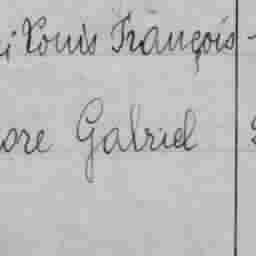 Louis François
Gabriel